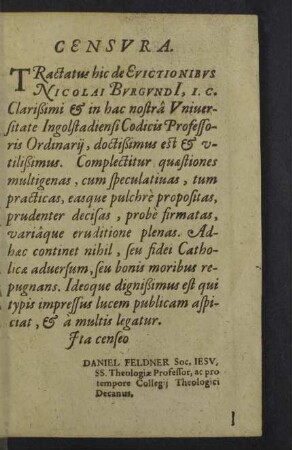 CENSVRA.
TRactatus hic de EVICTIONIBVS
NICOLAI BVRGVNDI, I. C.
Clarißimi & in hac nostrâ Vniuer-
sitate Ingolstadiensi Codicis Professo-
ris Ordinarij, doctißimus est & v-
tilißimus. Complectitur quæstiones
multigenas, cum speculatiuas, tum
practicas, easque pulchrè propositas,
prudenter decisas, probè firmatas,
variâque eruditione plenas. Ad-
hæc continet nihil, seu fidei Catho-
licæ aduersum, seu bonis moribus re-
pugnans. Ideoque dignißimus est qui
typis impressus lucem publicam aspi-
ciat, & à multis legatur.
Ita censeo
DANIEL FELDNER Soc. IESV,
SS. Theologiæ Professor, ac pro
tempore Collegij Theologici
Decanus.